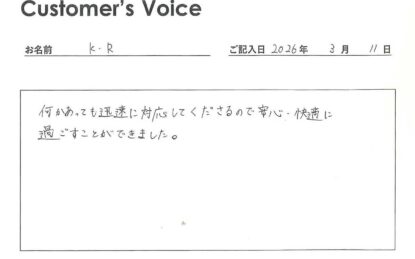 Customer's Voice
お名前 K・R ご記入日 2026年 3月 11日
何かあっても迅速に対応してくださるので安心・快適に
過ごすことができました。